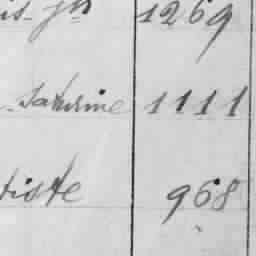 is-Jh 1269
Saturine 1111
tiste 968